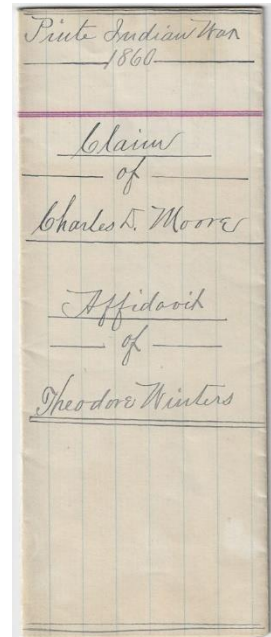 Piute Indian War
1860
Claim
of
Charles D. Moore
Affidavit
of
Theodore Winters